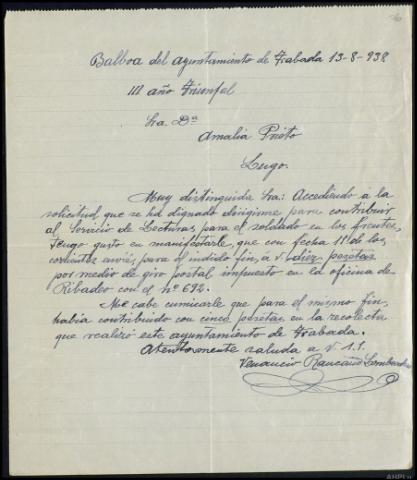 Balboa del ayuntamiento de Trabada 13-8-938
III año Triunfal
Sra. Dª
Amalia Prieto
Lugo.
Muy distinguida Sra: Accediendo a la
solicitud que se ha dignado dirigirme para contribuir
al Servicio de Lecturas para el soldado en los frentes,
tengo gusto en manifestarle, que con fecha 11 de los
corrientes envié, para el indicado fin, a V. diez pesetas
por medio de giro postal impuesto en la oficina de
Ribadeo con el nº 692.
Me cabe cumicarle que para el mismo fin,
había contribuido con cinco pesetas en la recolecta
que realizó este ayuntamiento de Trabada.
Atentamente saluda a V. S.S.
Venancio Rancaño Lombardero